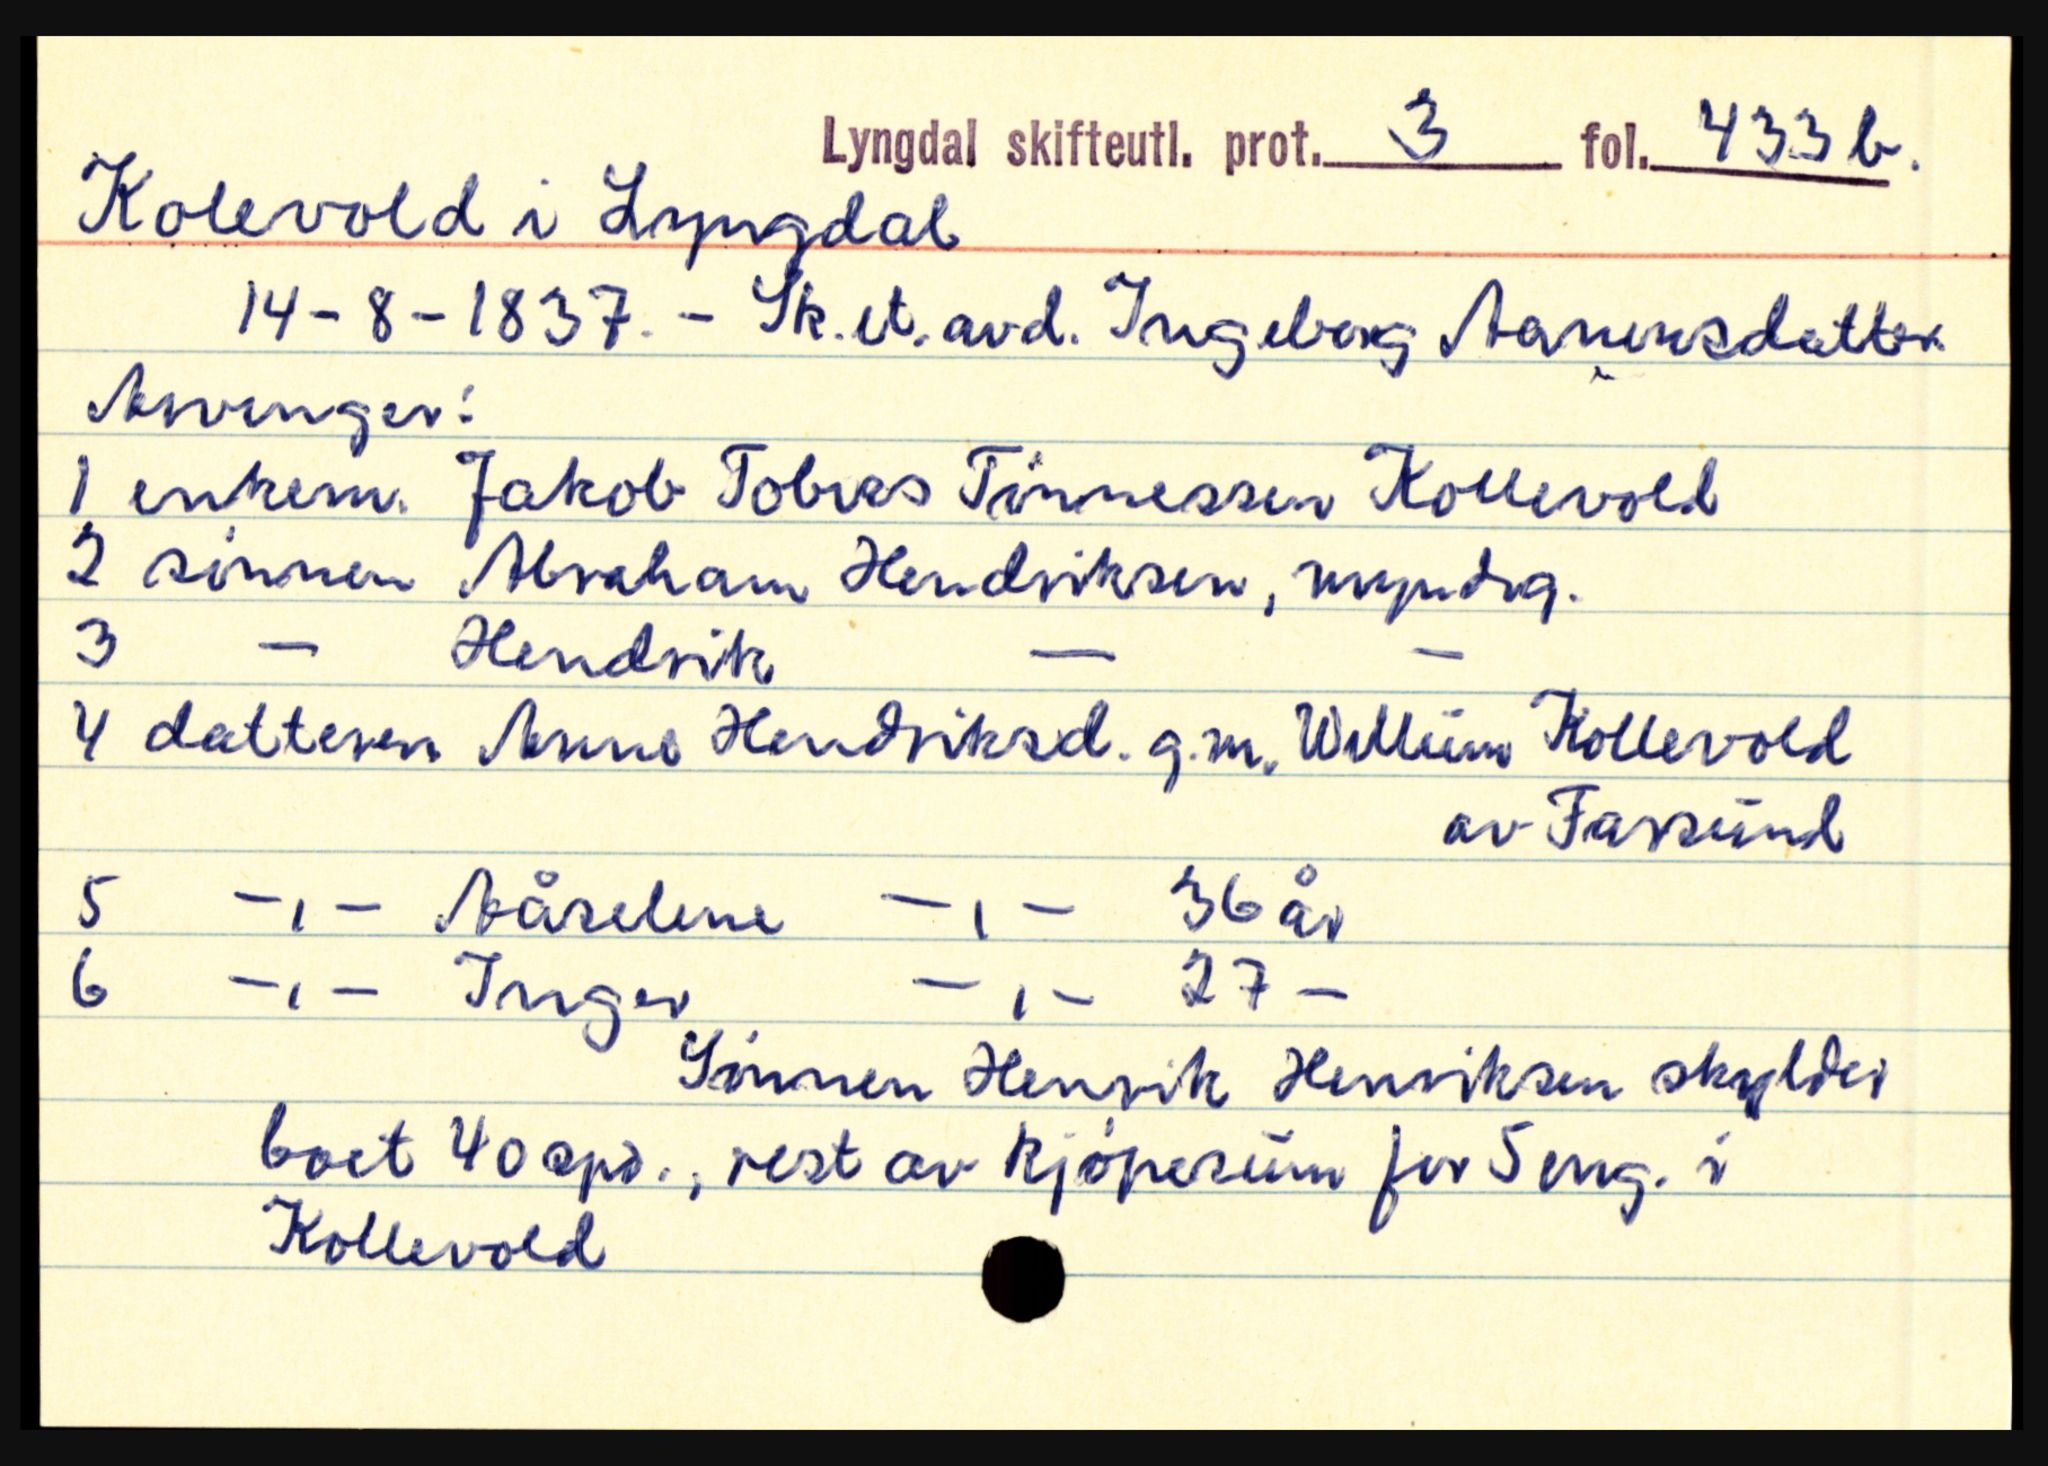 Lyngdal skifteutl. prot. 3 fol. 433 b.
Kolevold i Lyngdal
14-8-1837. - Sk. et. avd. Ingeborg Aanensdatter
Arvinger:
1 enkem. Jakob Tobias Tönnessen Kollevold
2 sönnen Abraham Hendriksen, myndig.
3 — Hendrik — —
4 datteren Anne Hendriksd. g.m. Willum Kollevold
av Farsund
5 -,- Aåselene -,- 36 år
6 -,- Inger -,- 27 -
Sönnen Henrik Henriksen skylder
boet 40 spd., rest av kjöpesum for 5 eng. i
Kollevold